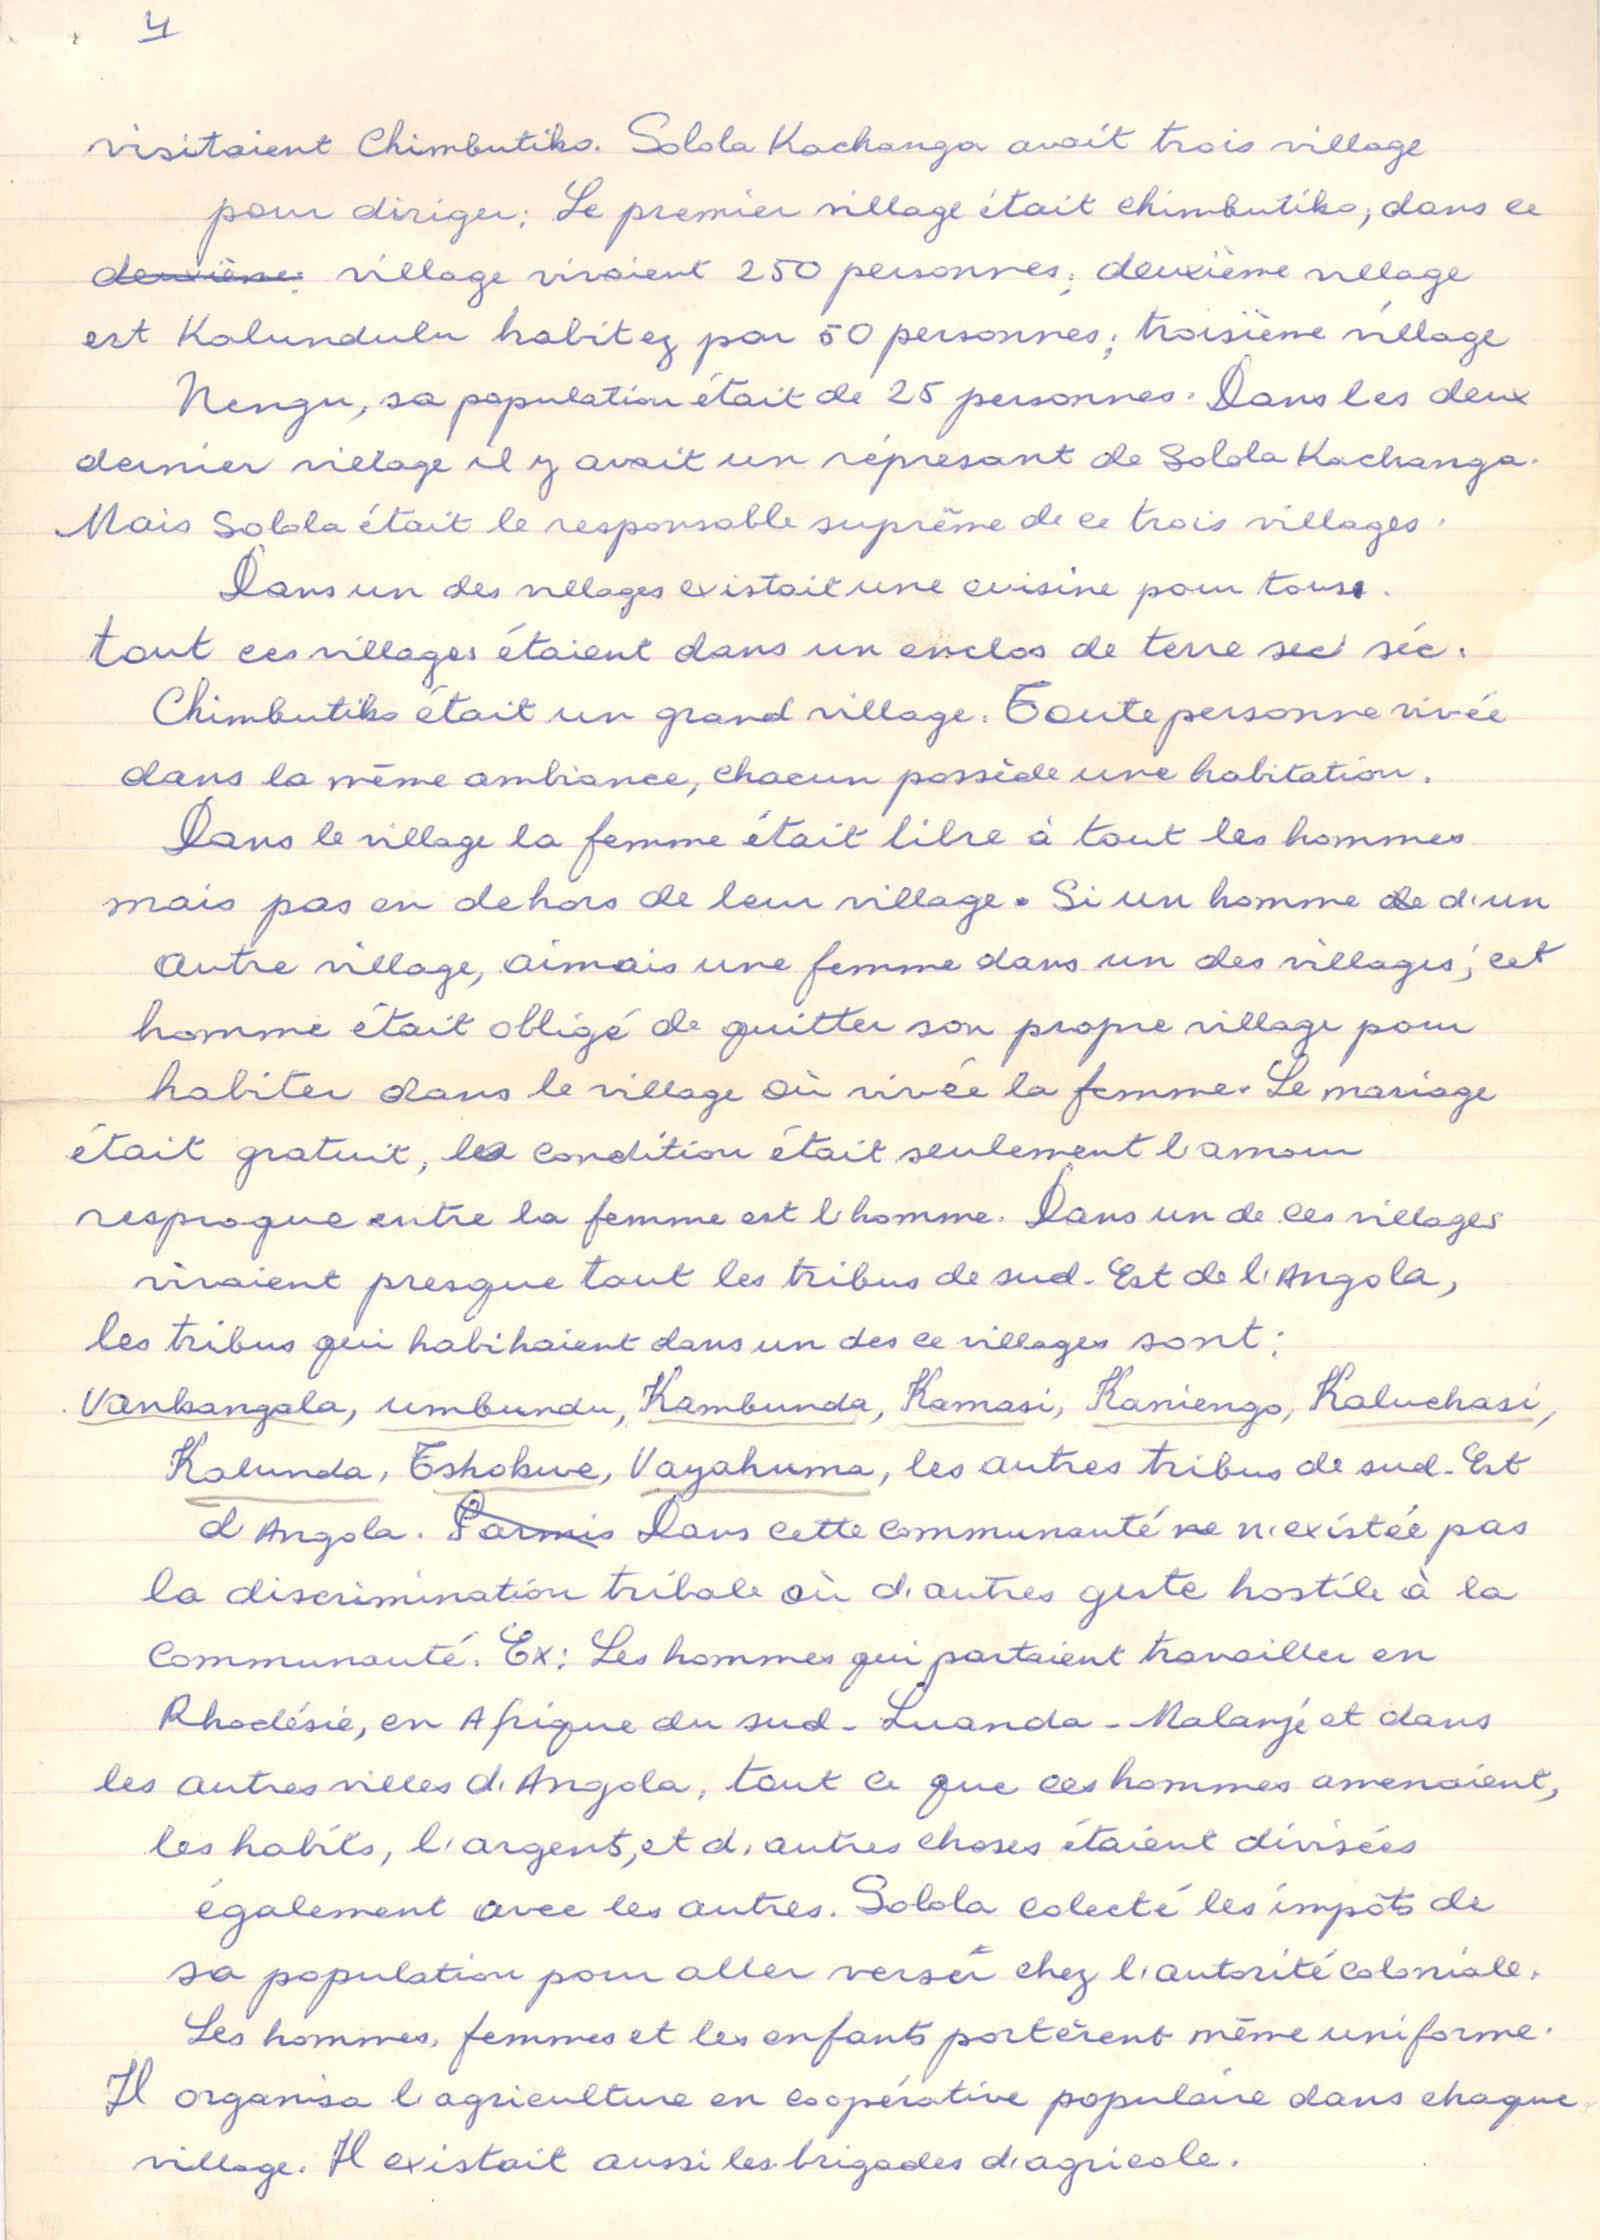 4
visitaient Chimbutiko. Solola Kachanga avait trois village
pour diriger; Le premier village était chimbutiko, dans ce
deuxième; village vivaient 250 personnes; deuxième village
est Kalundulu habitez par 50 personnes; troisième village
Nengu, sa population était de 25 personnes. Dans les deux
dernier village il y avait un répresant de Solola Kachanga.
Mais Solola était le responsable suprême de ce trois villages.
Dans un des villages existait une cuisine pour tous.
tout ces villages étaient dans un enclos de terre sec séc.
Chimbutiko était un grand village. Toute personne vivée
dans la même ambiance, chacun possède une habitation.
Dans le village la femme était libre à tout les hommes
mais pas en dehors de leur village. Si un homme de d'un
autre village, aimais une femme dans un des villages; cet
homme était obligé de quitter son propre village pour
habiter dans le village où vivée la femme. Le mariage
était gratuit, la condition était seulement l'amour
resproque entre la femme est l'homme. Dans un de ces villages
vivaient presque tout les tribus de sud-Est de l'Angola,
les tribus qui habihaient dans un des ce villages sont:
Vankangala, umbundu, Kambunda, Kamasi, Kaniengo, Kaluchasi,
Kalunda, Tshokwe, Vayahuma, les autres tribus de sud-Est
d'Angola. Parmis Dans cette communauté ne n'existée pas
la discrimination tribale où d'autres geste hostile à la
communauté. Ex: Les hommes qui partaient travailler en
Rhodésie, en Afrique du sud - Luanda - Malanjé et dans
les autres villes d'Angola, tout ce que ces hommes amenaient,
les habits, l'argent, et d'autres choses étaient divisées
également avec les autres. Solola colecté les impôts de
sa population pour aller verser chez l'autorité coloniale.
Les hommes, femmes et les enfants portèrent même uniforme.
Il organisa l'agriculture en coopérative populaire dans chaque
village. Il existait aussi les brigades d'agricole.